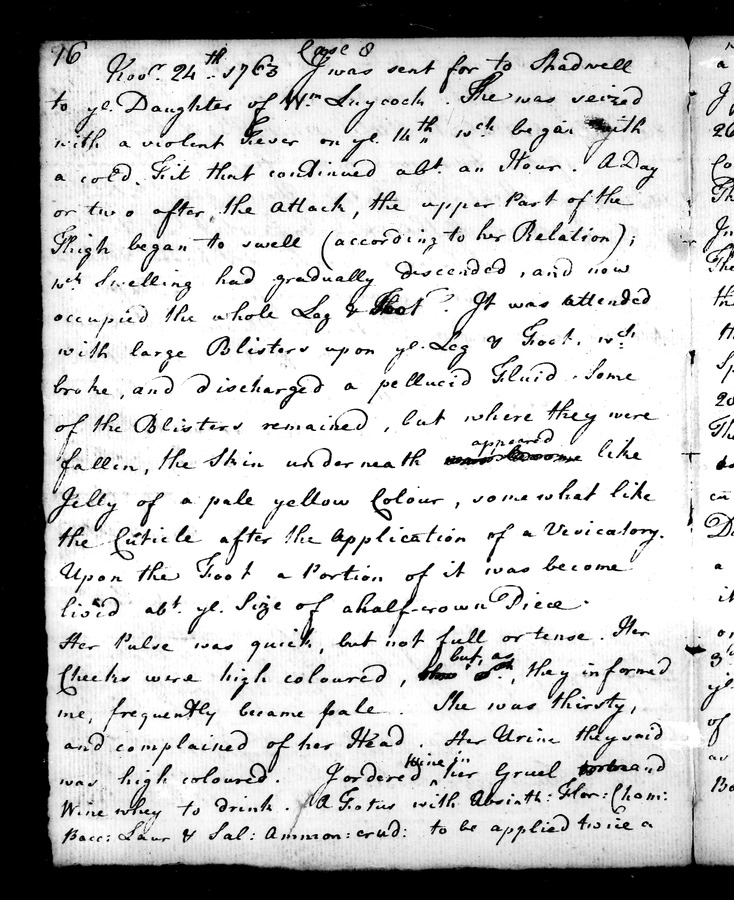 16 Case 8
Novr. 24th. 1763 I was sent for to Shadwell
to ye. Daughter of Wm Luycock. She was seized
with a violent Fever on ye. 14th wch began with
a cold Fit that continued abt. an Hour. A Day
or two after, the attack, the upper Part of the
Thigh began to swell (according to her Relation);
wch Swelling had gradually descended, and now
occupied the whole Leg & Foot. It was attended
with large Blisters upon ye. Leg & Foot, wch
broke, and discharged a pellucid Fluid. Some
of the Blisters remained, but where they were
fallen, the Skin underneath appeared like
Jelly of a pale yellow Colour, somewhat like
the Cuticle after the Application of a Vesicatory.
Upon the Foot a Portion of it was become
livid abt. ye. Size of a half-crown Piece.
Her Pulse was quick, but not full or tense. Her
Cheeks were high coloured, but, as, they informed
me, frequently became pale. She was thirsty,
and complained of her Head. Her Urine they said
was high coloured. I ordered Wine in her Gruel and
Wine whey to drink. A Fotus with Absinth: Flor: Cham:
Bacc: Laur & Sal: Ammon: crud: to be applied twice a